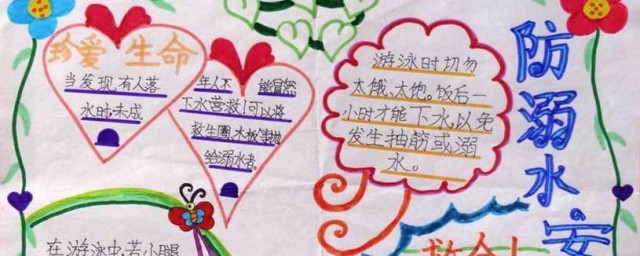 珍爱生命
当发现有人落
水时,未成
年人不能冒然
下水营救!可以将
救生圈、木板等抛
给溺水者。
游泳时切勿
太饿、太饱。饭后一
小时才能下水,以免
发生抽筋或溺
水。
防溺水安
在游泳中,若小腿